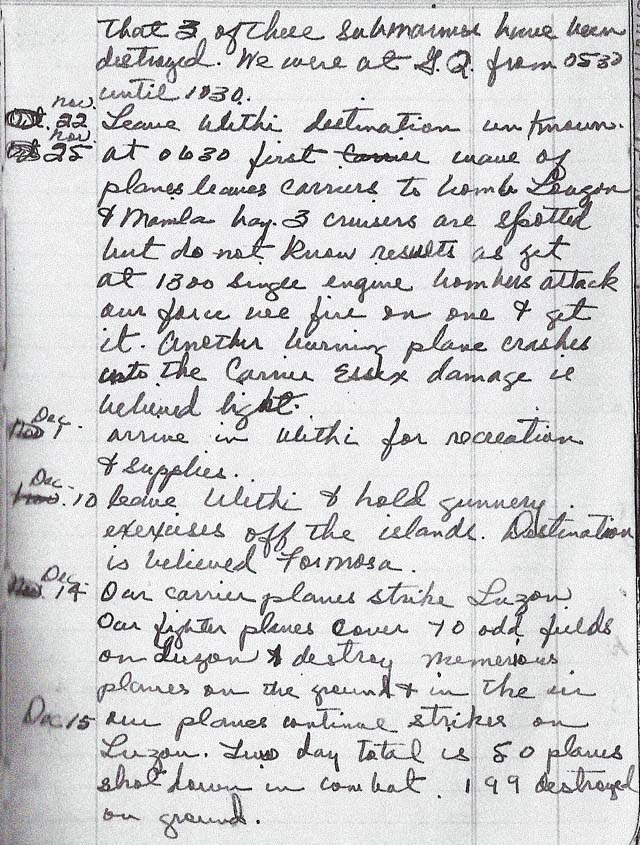 that 3 of these submarines have been
destroyed. We were at G.Q. from 0530
until 1030.
Nov. 22 Leave Ulithi destination unknown.
Nov 25 at 0630 first wave of
planes leaves carriers to bomb Luzon
& Manila bay. 3 cruisers are spotted
but do not know results as yet
at 1300 single engine bombers attack
our force we fire on one & get
it. Another burning plane crashes
into the Carrier Essex damage is
believed light.
Dec 1 arrive in Ulithi for recreation
& supplies.
Dec. 10 leave Ulithi & hold gunnery
exercises off the islands. Destination
is believed Formosa.
Dec. 14 Our carrier planes strike Luzon
Our fighter planes cover 70 odd fields
on Luzon & destroy numerous
planes on the ground & in the air
Dec 15 our planes continue strikes on
Luzon. Two day total is 50 planes
shot down in combat. 199 destroyed
on ground.